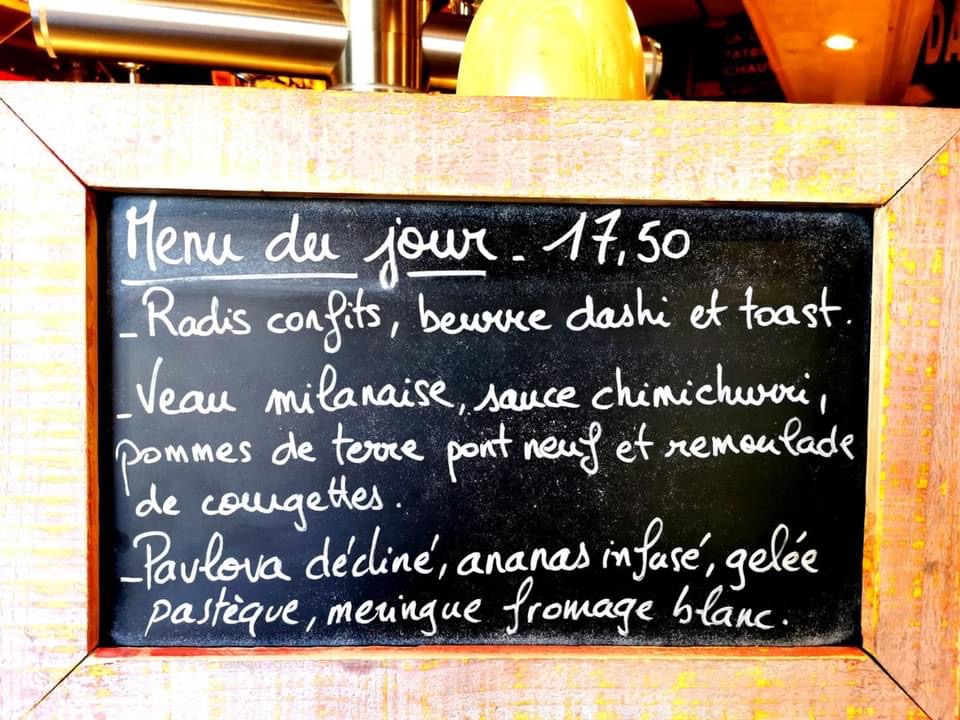 LA C
PATRI
CHAU
DA
Menu du jour - 17,50
- Radis confits, beurre dashi et toast.
- Veau milanaise, sauce chimichurri,
pommes de terre pont neuf et remoulade
de courgettes.
- Pavlova décliné, ananas infusé, gelée
pastèque, meringue fromage blanc.